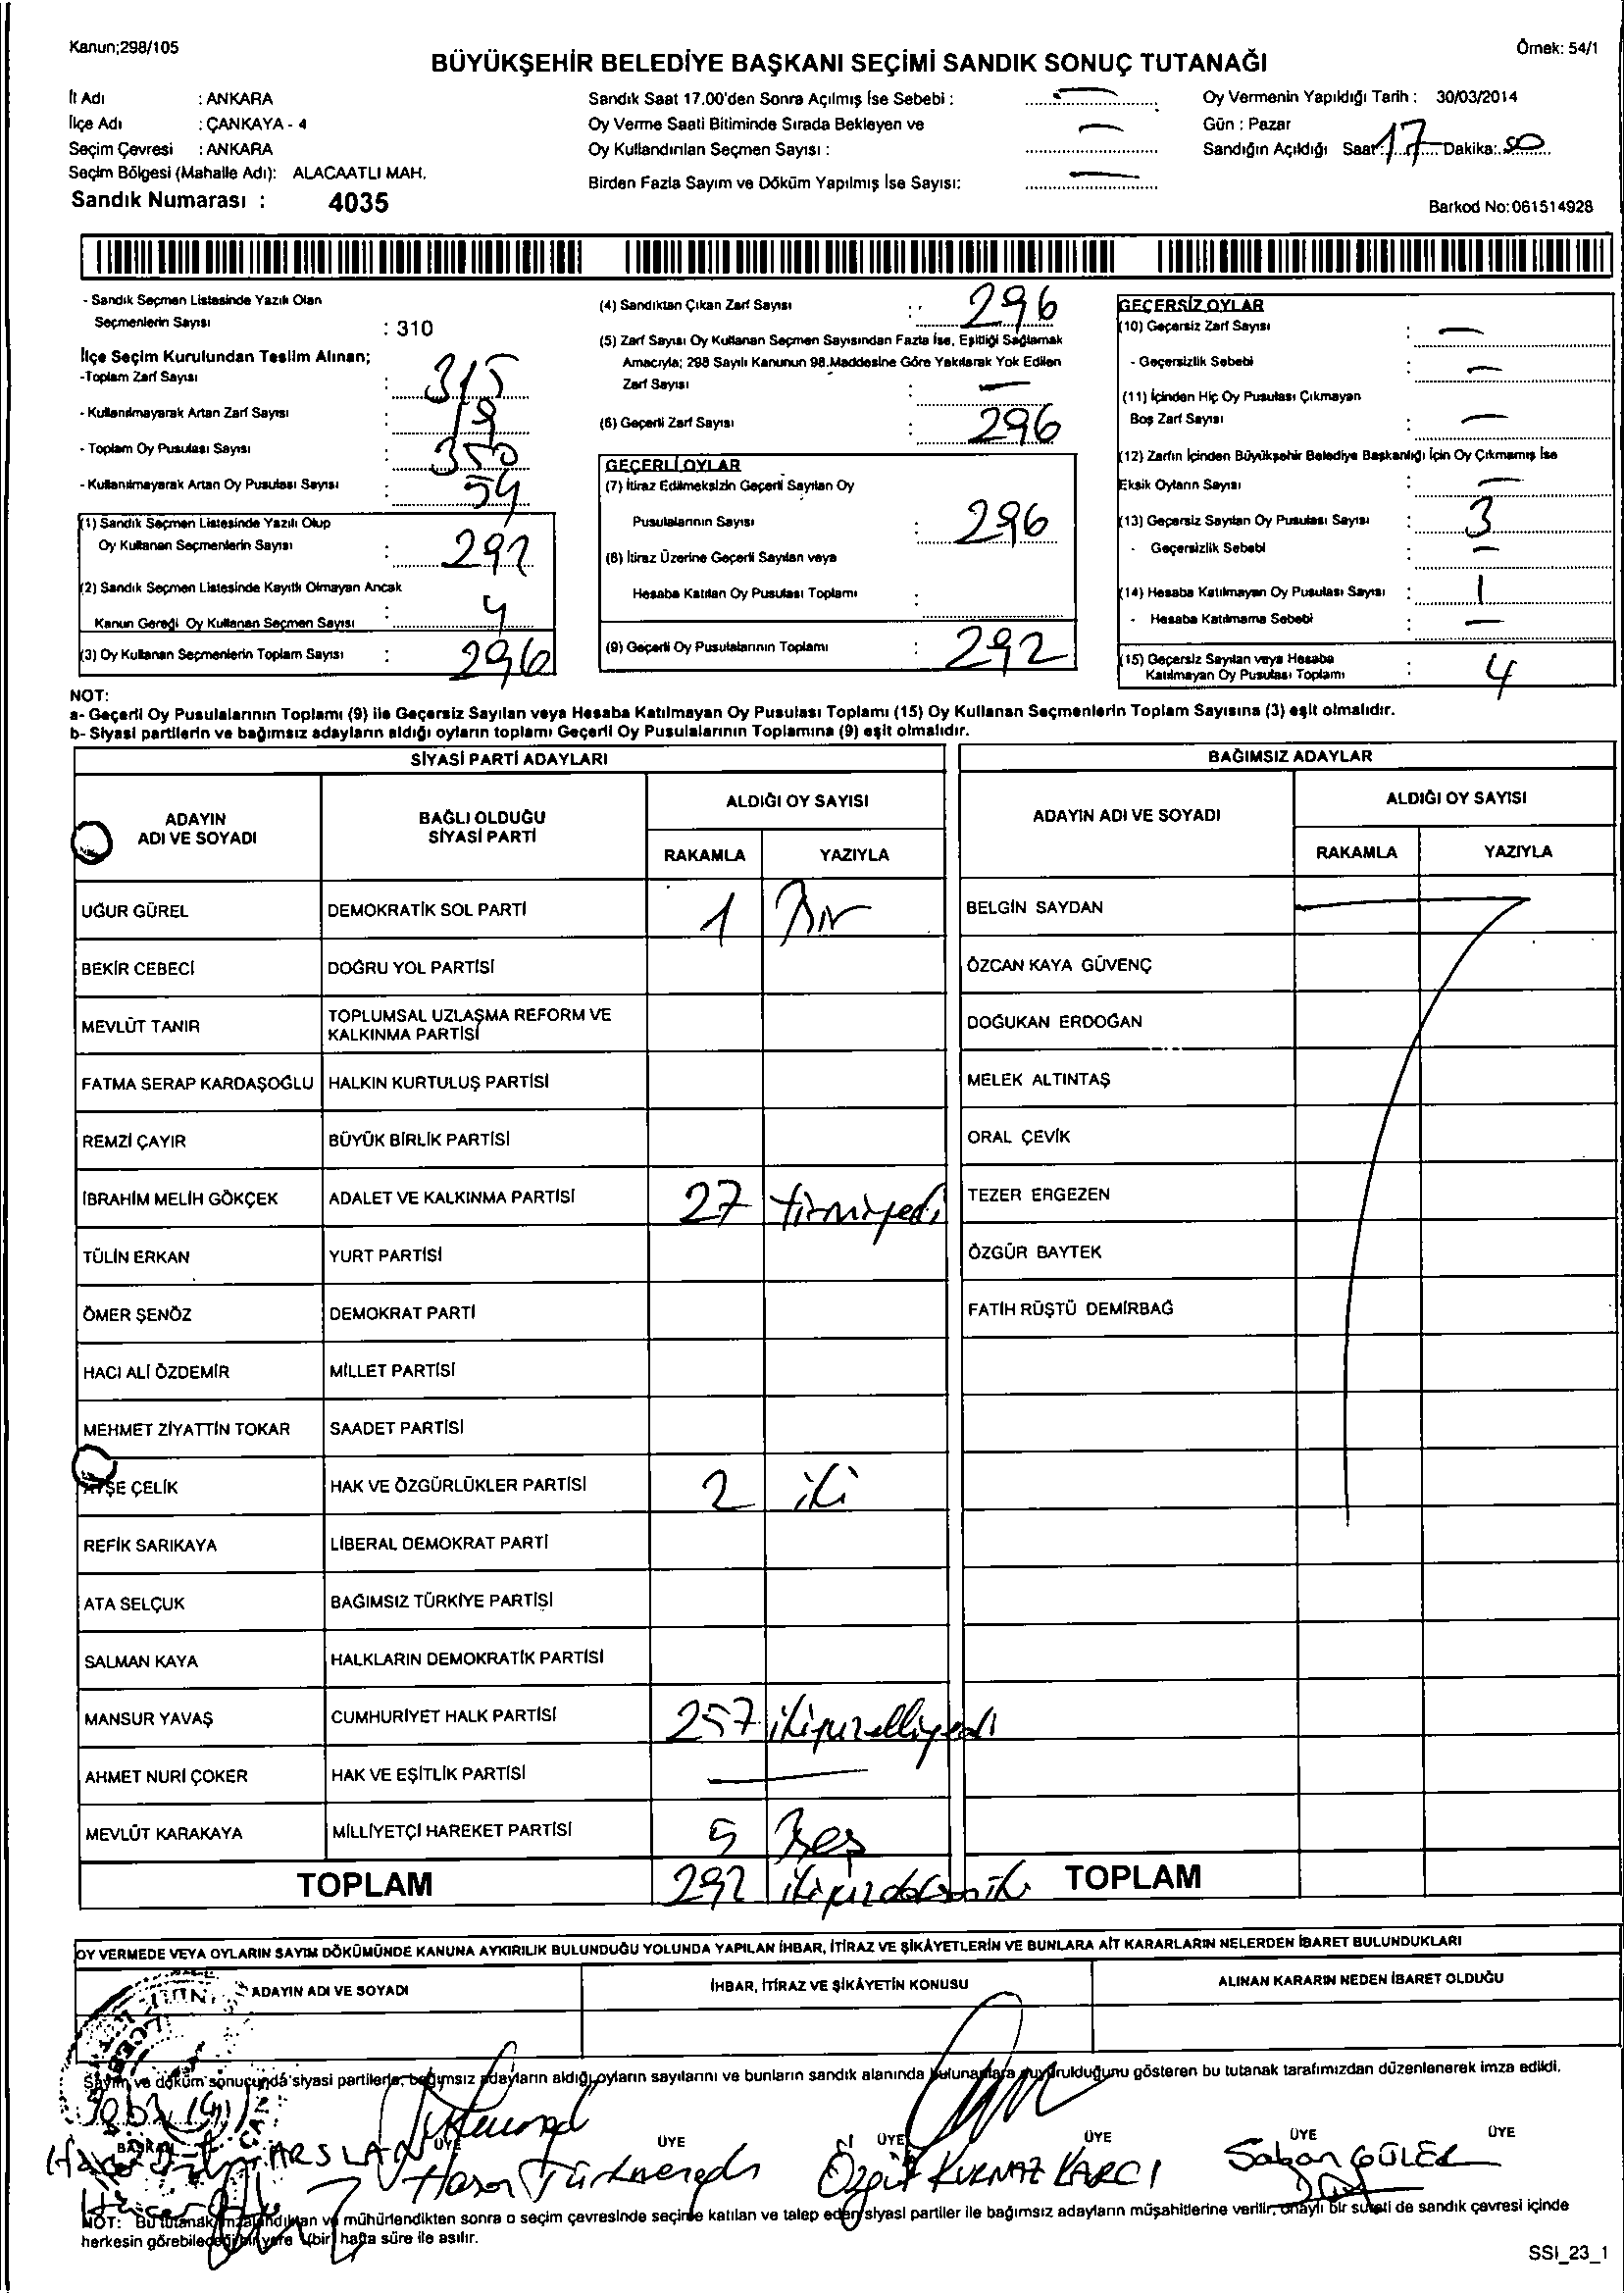 Kanun;298/105
Örnek: 54/1
BÜYÜKŞEHİR BELEDİYE BAŞKANI SEÇİMİ SANDIK SONUÇ TUTANAĞI
İl Adı : ANKARA
İlçe Adı : ÇANKAYA - 4
Seçim Çevresi : ANKARA
Seçim Bölgesi (Mahalle Adı): ALACAATLI MAH.
Sandık Numarası : 4035
Sandık Saat 17.00'den Sonra Açılmış İse Sebebi : —
Oy Verme Saati Bitiminde Sırada Bekleyen ve
Oy Kullandırılan Seçmen Sayısı : —
Birden Fazla Sayım ve Döküm Yapılmış İse Sayısı: —
Oy Vermenin Yapıldığı Tarih : 30/03/2014
Gün : Pazar
Sandığın Açıldığı Saat: 17 Dakika: 50
Barkod No:061514928
- Sandık Seçmen Listesinde Yazılı Olan
Seçmenlerin Sayısı : 310
İlçe Seçim Kurulundan Teslim Alınan;
-Toplam Zarf Sayısı : 315
- Kullanılmayarak Artan Zarf Sayısı : 19
- Toplam Oy Pusulası Sayısı : 350
- Kullanılmayarak Artan Oy Pusulası Sayısı : 54
(1) Sandık Seçmen Listesinde Yazılı Olup
Oy Kullanan Seçmenlerin Sayısı : 292
(2) Sandık Seçmen Listesinde Kayıtlı Olmayan Ancak
Kanun Gereği Oy Kullanan Seçmen Sayısı : 4
(3) Oy Kullanan Seçmenlerin Toplam Sayısı : 296
(4) Sandıktan Çıkan Zarf Sayısı : 296
(5) Zarf Sayısı Oy Kullanan Seçmen Sayısından Fazla İse, Eşitliği Sağlamak
Amacıyla; 298 Sayılı Kanunun 98.Maddesine Göre Yakılarak Yok Edilen
Zarf Sayısı : —
(6) Geçerli Zarf Sayısı : 296
GEÇERLİ OYLAR
(7) İtiraz Edilmeksizin Geçerli Sayılan Oy
Pusulalarının Sayısı : 296
(8) İtiraz Üzerine Geçerli Sayılan veya
Hesaba Katılan Oy Pusulası Toplamı :
(9) Geçerli Oy Pusulalarının Toplamı : 292
GEÇERSİZ OYLAR
(10) Geçersiz Zarf Sayısı : —
- Geçersizlik Sebebi : —
(11) İçinden Hiç Oy Pusulası Çıkmayan
Boş Zarf Sayısı : —
(12) Zarfın İçinden Büyükşehir Belediye Başkanlığı İçin Oy Çıkmamış İse
Eksik Oyların Sayısı : —
(13) Geçersiz Sayılan Oy Pusulası Sayısı : 3
- Geçersizlik Sebebi : —
(14) Hesaba Katılmayan Oy Pusulası Sayısı : 1
- Hesaba Katılmama Sebebi : —
(15) Geçersiz Sayılan veya Hesaba
Katılmayan Oy Pusulası Toplamı : 4
NOT:
a- Geçerli Oy Pusulalarının Toplamı (9) ile Geçersiz Sayılan veya Hesaba Katılmayan Oy Pusulası Toplamı (15) Oy Kullanan Seçmenlerin Toplam Sayısına (3) eşit olmalıdır.
b- Siyasi partilerin ve bağımsız adayların aldığı oyların toplamı Geçerli Oy Pusulalarının Toplamına (9) eşit olmalıdır.
SİYASİ PARTİ ADAYLARI
ADAYIN ADI VE SOYADI
BAĞLI OLDUĞU SİYASİ PARTİ
ALDIĞI OY SAYISI
RAKAMLA YAZIYLA
UĞUR GÜREL DEMOKRATİK SOL PARTİ 1 Bir
BEKİR CEBECİ DOĞRU YOL PARTİSİ
MEVLÜT TANIR TOPLUMSAL UZLAŞMA REFORM VE
KALKINMA PARTİSİ
FATMA SERAP KARDAŞOĞLU HALKIN KURTULUŞ PARTİSİ
REMZİ ÇAYIR BÜYÜK BİRLİK PARTİSİ
İBRAHİM MELİH GÖKÇEK ADALET VE KALKINMA PARTİSİ 27 yirmiyedi
TÜLİN ERKAN YURT PARTİSİ
ÖMER ŞENÖZ DEMOKRAT PARTİ
HACI ALİ ÖZDEMİR MİLLET PARTİSİ
MEHMET ZİYATTİN TOKAR SAADET PARTİSİ
AYŞE ÇELİK HAK VE ÖZGÜRLÜKLER PARTİSİ 2 iki
REFİK SARIKAYA LİBERAL DEMOKRAT PARTİ
ATA SELÇUK BAĞIMSIZ TÜRKİYE PARTİSİ
SALMAN KAYA HALKLARIN DEMOKRATİK PARTİSİ
MANSUR YAVAŞ CUMHURİYET HALK PARTİSİ 257 ikiyüzelliyedi
AHMET NURİ ÇOKER HAK VE EŞİTLİK PARTİSİ —
MEVLÜT KARAKAYA MİLLİYETÇİ HAREKET PARTİSİ 5 Beş
TOPLAM 292 ikiyüzdoksaniki
BAĞIMSIZ ADAYLAR
ADAYIN ADI VE SOYADI
ALDIĞI OY SAYISI
RAKAMLA YAZIYLA
BELGİN SAYDAN
ÖZCAN KAYA GÜVENÇ
DOĞUKAN ERDOĞAN
MELEK ALTINTAŞ
ORAL ÇEVİK
TEZER ERGEZEN
ÖZGÜR BAYTEK
FATİH RÜŞTÜ DEMİRBAĞ
TOPLAM
OY VERMEDE VEYA OYLARIN SAYIM DÖKÜMÜNDE KANUNA AYKIRILIK BULUNDUĞU YOLUNDA YAPILAN İHBAR, İTİRAZ VE ŞİKÂYETLERİN VE BUNLARA AİT KARARLARIN NELERDEN İBARET BULUNDUKLARI
ADAYIN ADI VE SOYADI
İHBAR, İTİRAZ VE ŞİKÂYETİN KONUSU
ALINAN KARARIN NEDEN İBARET OLDUĞU
Sayım ve döküm sonucunda siyasi partilerle, bağımsız adayların aldığı oyların sayılarını ve bunların sandık alanında bulunanlara duyurulduğunu gösteren bu tutanak tarafımızdan düzenlenerek imza edildi.
BAŞKAN ÜYE ÜYE ÜYE ÜYE ÜYE ÜYE
ARSLAN Hasan Özgür KURNAZ KARCI Şaban GÜLER
NOT: Bu tutanak imzalandıktan ve mühürlendikten sonra o seçim çevresinde seçime katılan ve talep eden siyasi partiler ile bağımsız adayların müşahitlerine verilir, onaylı bir sureti de sandık çevresi içinde
herkesin görebileceği bir yere 1(bir) hafta süre ile asılır.
SSI_23_1